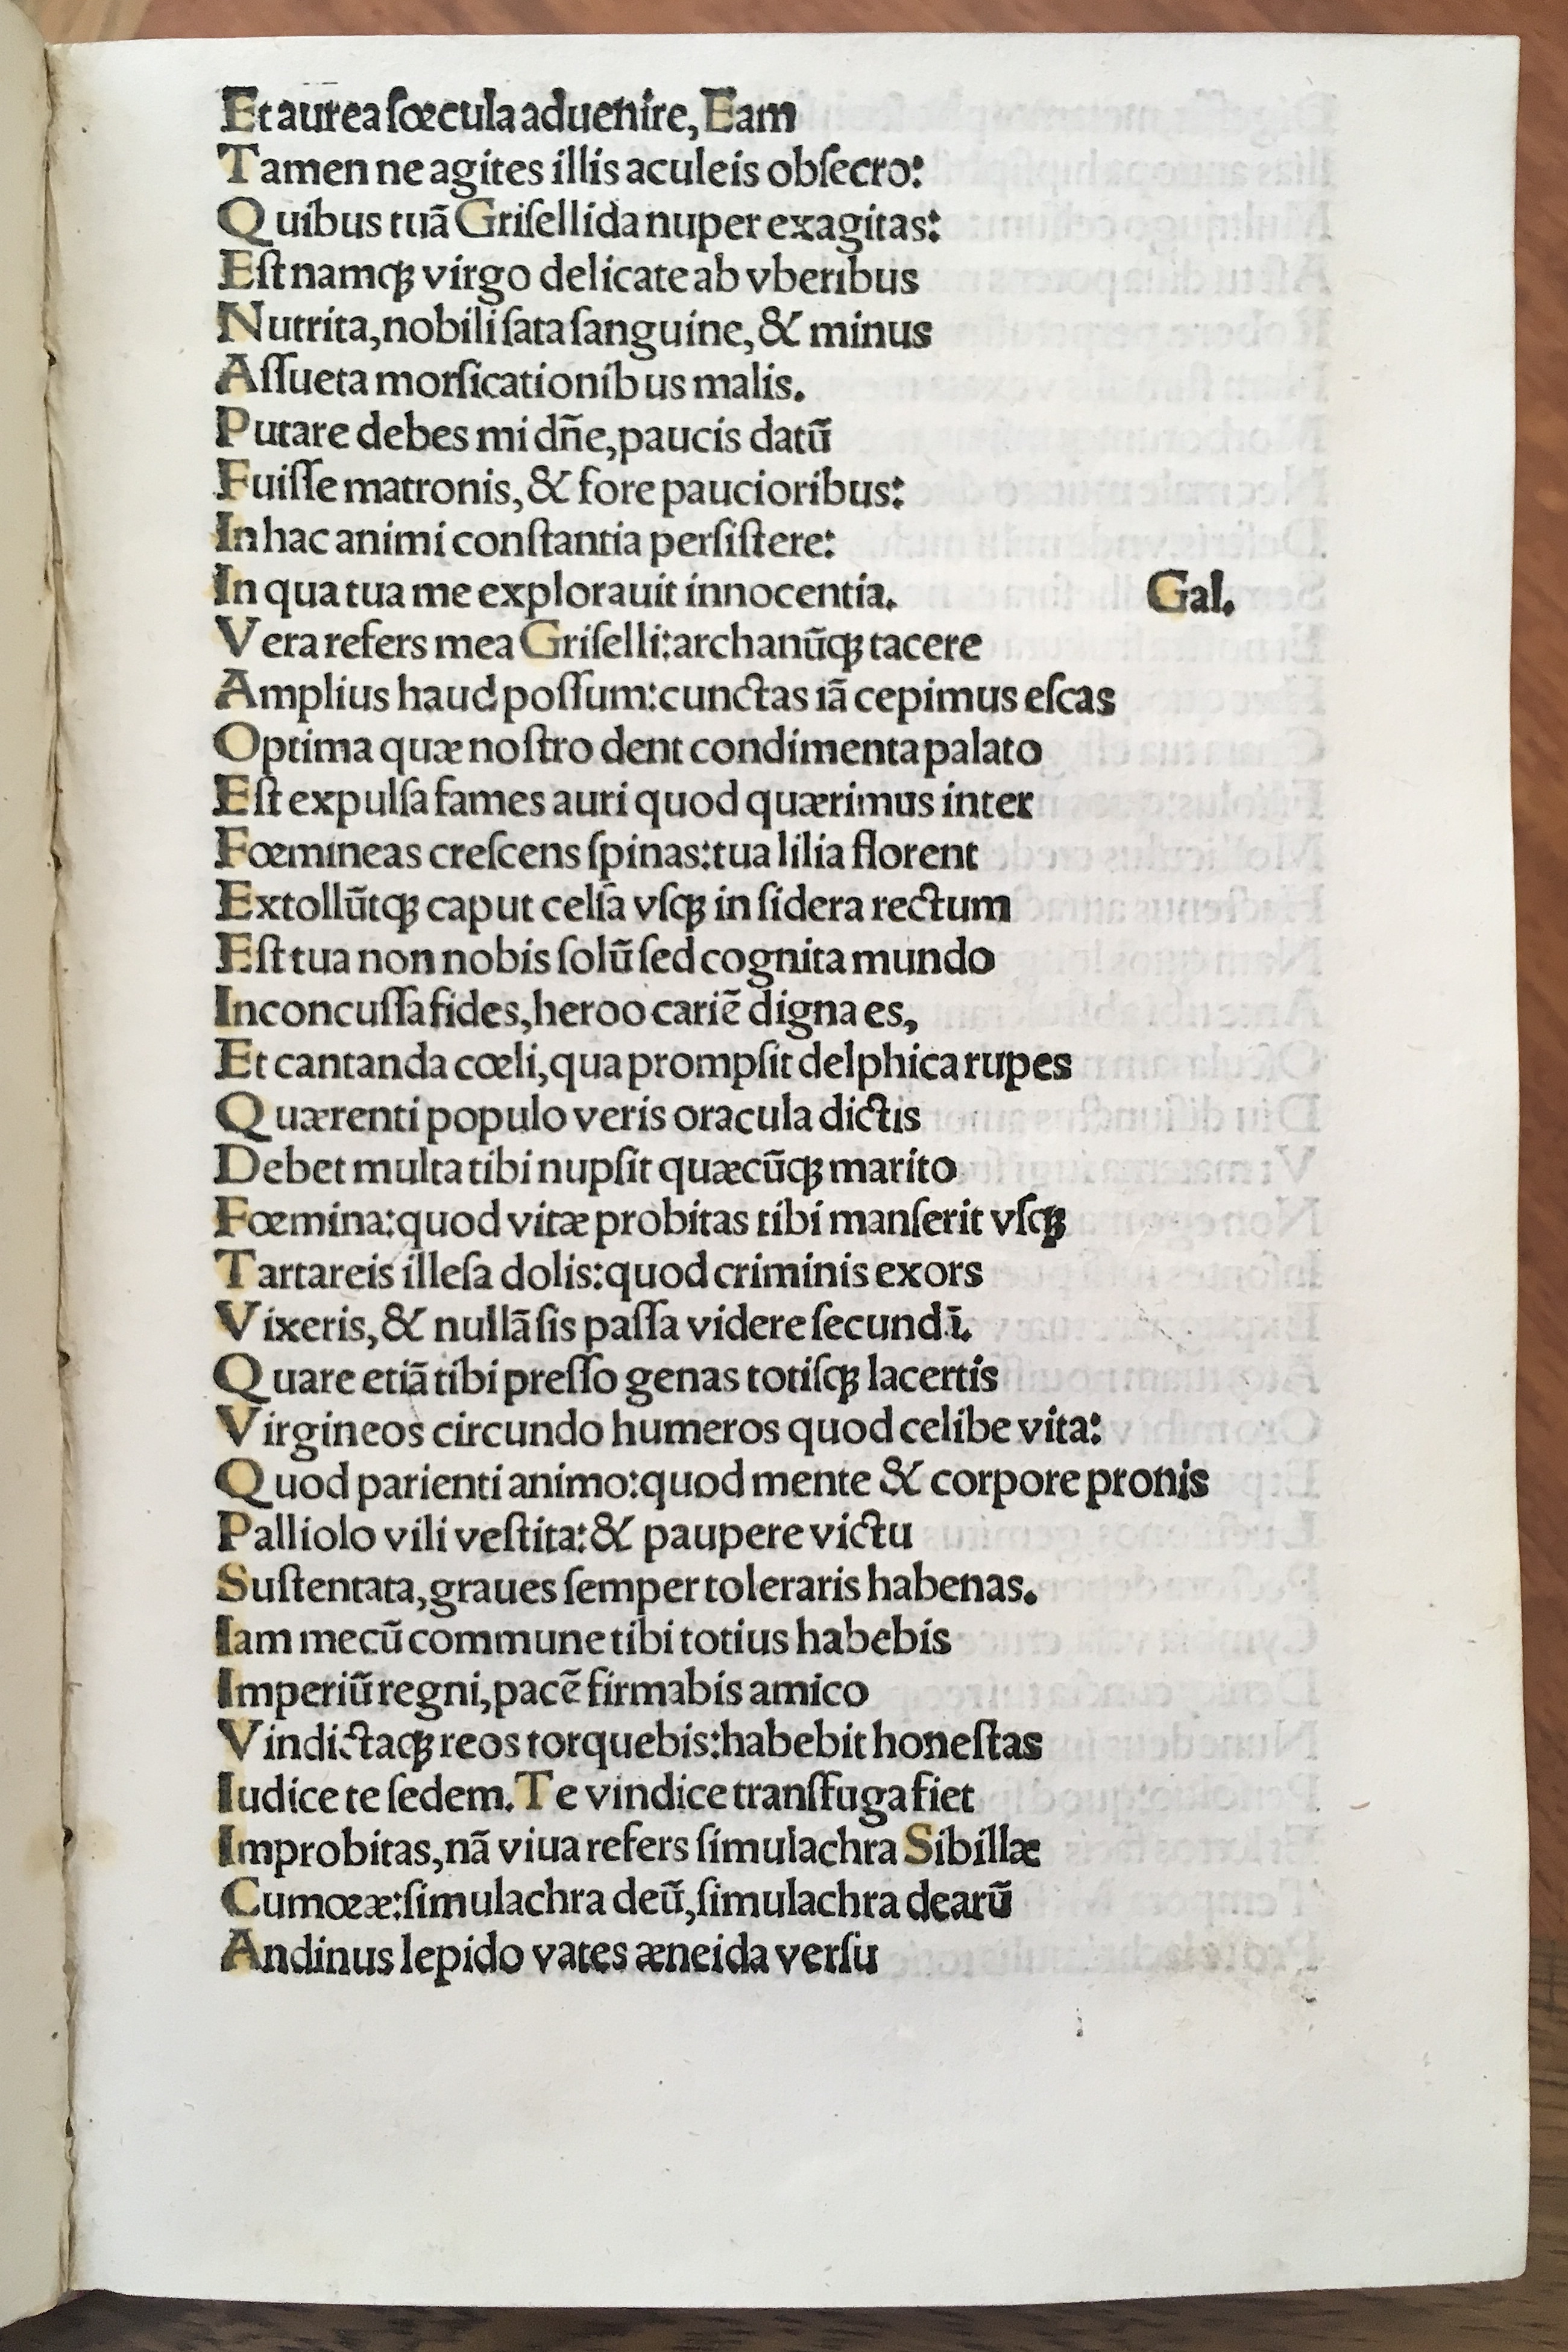 Et aurea ſœcula aduenire, Eam
Tamen ne agites illis aculeis obſecro:
Quibus tuã Griſellida nuper exagitas:
Eſt namqꝫ virgo delicate ab vberibus
Nutrita, nobili ſata ſanguine, & minus
Aſſueta morſicationibus malis.
Putare debes mi dñe, paucis datũ
Fuiſſe matronis, & fore paucioribus:
In hac animi conſtantia perſiſtere:
In qua tua me explorauit innocentia. Gal.
Vera refers mea Griſelli: archanũqꝫ tacere
Amplius haud poſſum: cunctas iã cepimus eſcas
Optima quæ noſtro dent condimenta palato
Eſt expulſa fames auri quod quærimus inter
Fœmineas creſcens ſpinas: tua lilia florent
Extollũtqꝫ caput celſa vſqꝫ in ſidera rectum
Eſt tua non nobis ſolũ ſed cognita mundo
Inconcuſſa fides, heroo cariẽ digna es,
Et cantanda cœli, qua prompſit delphica rupes
Quærenti populo veris oracula dictis
Debet multa tibi nupſit quæcũqꝫ marito
Fœmina: quod vitæ probitas tibi manſerit vſqꝫ
Tartareis illeſa dolis: quod criminis exors
Vixeris, & nullã ſis paſſa videre ſecundĩ.
Quare etiã tibi preſſo genas totiſqꝫ lacertis
Virgineos circundo humeros quod celibe vita:
Quod parienti animo: quod mente & corpore pronis
Palliolo vili veſtita: & paupere victu
Suſtentata, graues ſemper toleraris habenas.
Iam mecũ commune tibi totius habebis
Imperiũ regni, pacẽ firmabis amico
Vindictaqꝫ reos torquebis: habebit honeſtas
Iudice te ſedem. Te vindice tranſfuga fiet
Improbitas, nã viua refers ſimulachra Sibillæ
Cumœæ: ſimulachra deũ, ſimulachra dearũ
Andinus lepido vates æneida verſu